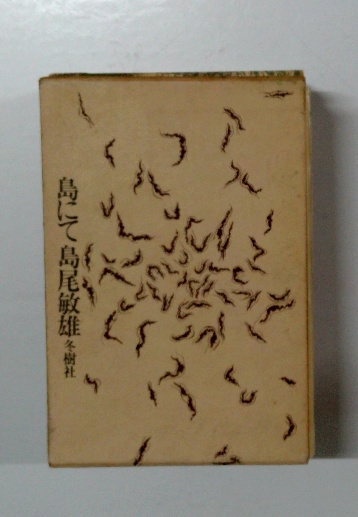 島にて 島尾敏雄 冬樹社